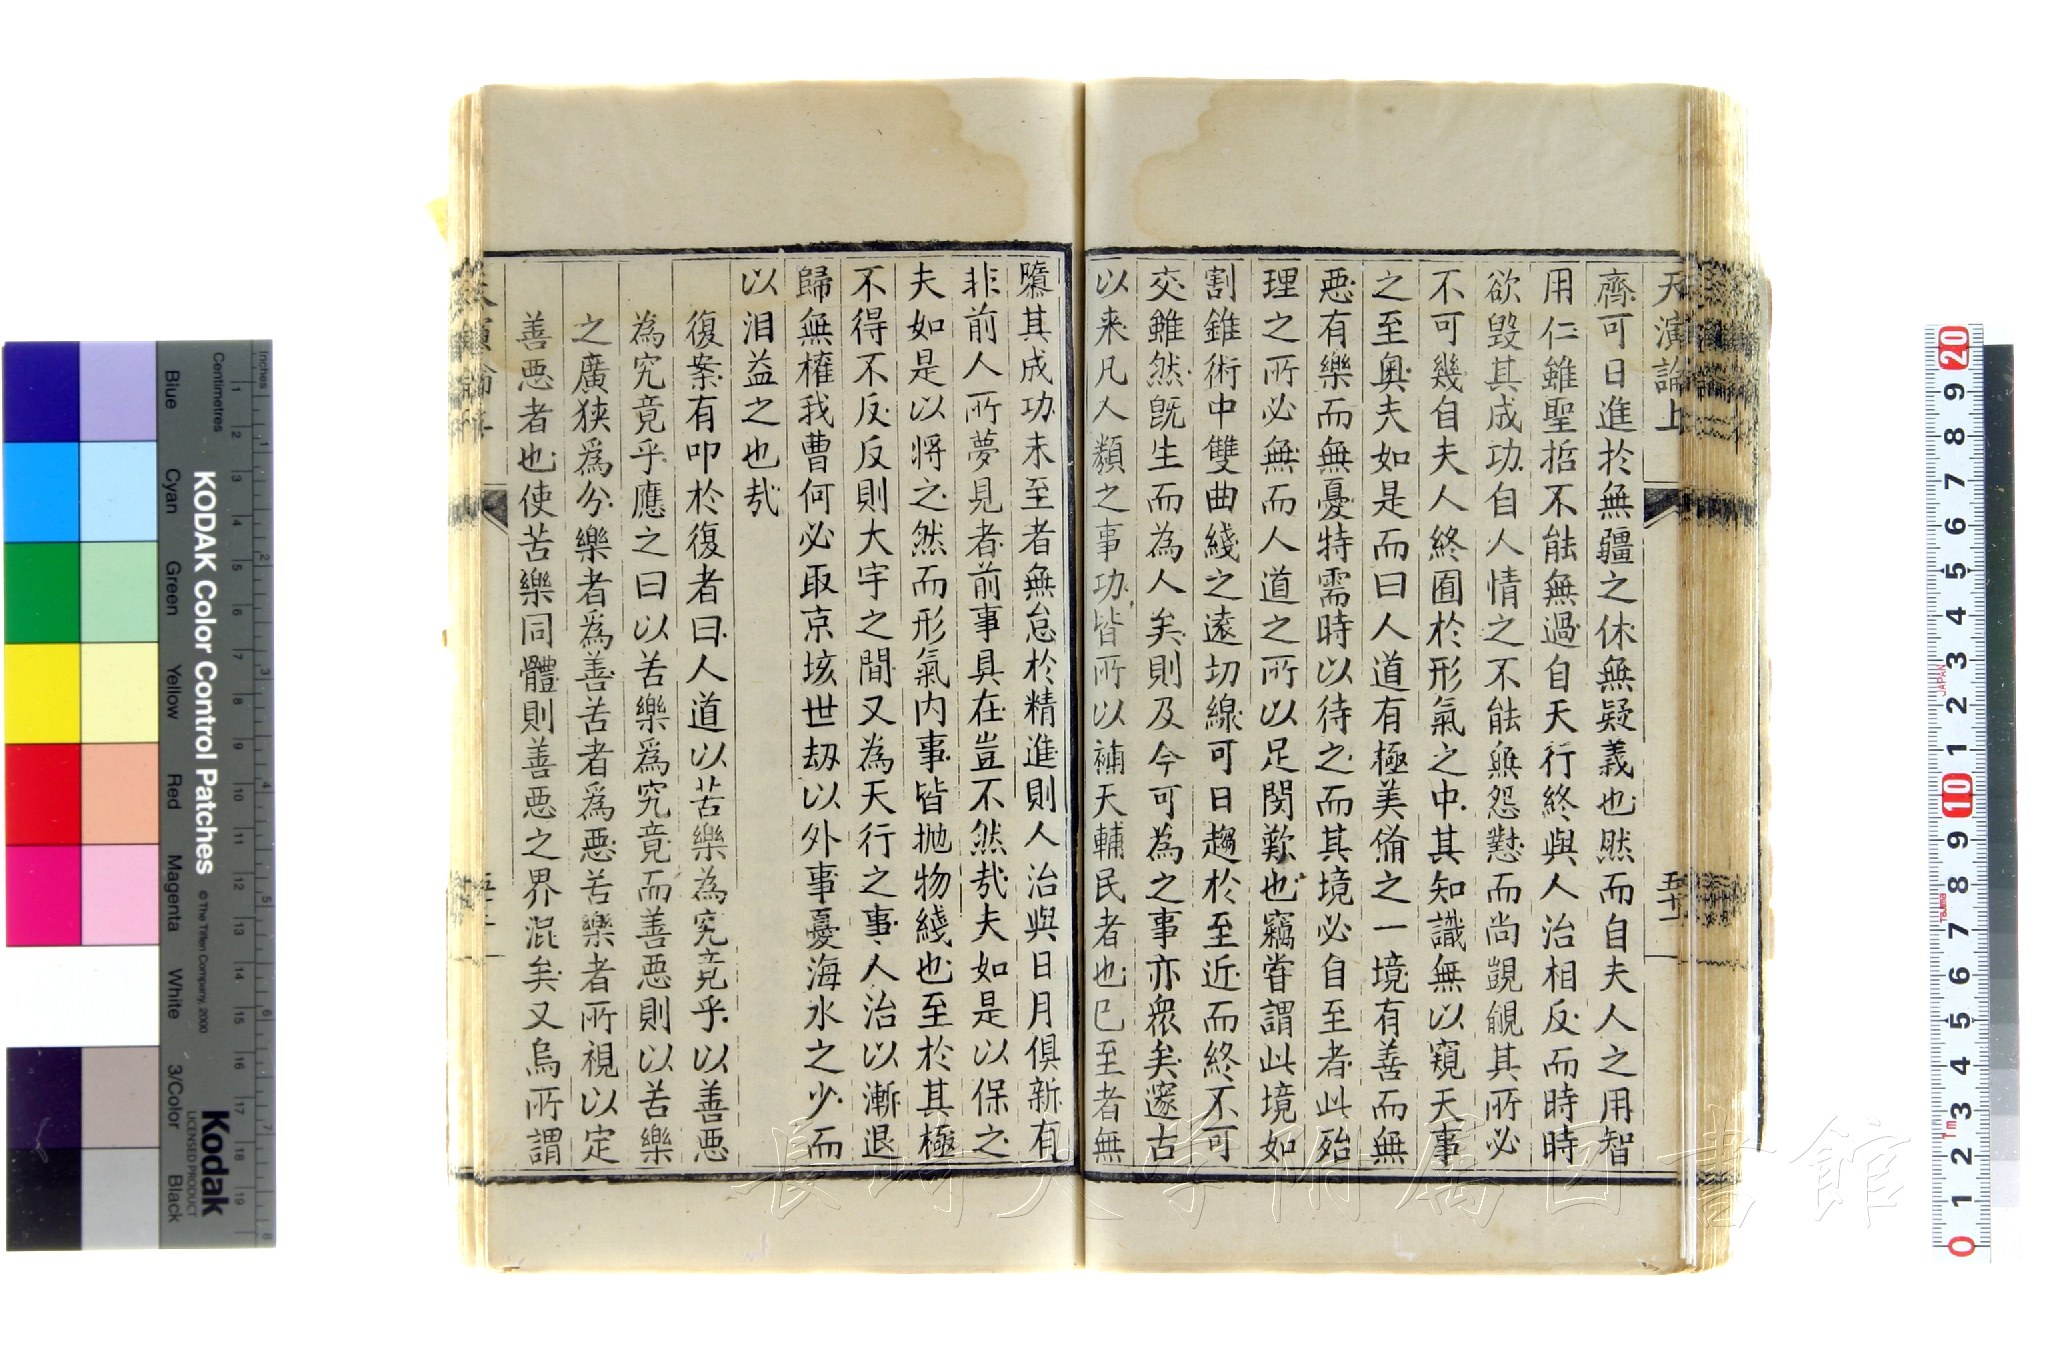 天演論上
齊可日進於無疆之休無疑義也然而自夫人之用智
用仁雖聖哲不能無過自天行終與人治相反而時時
欲毀其成功自人情之不能無怨懟而尚覬覦其所必
不可幾自夫人終囿於形氣之中其知識無以窺天事
之至奧夫如是而曰人道有極美備之一境有善而無
惡有樂而無憂特需時以待之而其境必自至者此殆
理之所必無而人道之所以足閔歎也竊嘗謂此境如
割錐術中雙曲綫之遠切線可日趨於至近而終不可
交雖然既生而為人矣則及今可為之事亦衆矣邃古
以来凡人類之事功皆所以補天輔民者也已至者無
隳其成功未至者無怠於精進則人治與日月俱新有
非前人所夢見者前事具在豈不然哉夫如是以保之
夫如是以將之然而形氣内事皆抛物綫也至於其極
不得不反反則大宇之間又為天行之事人治以漸退
歸無權我曹何必取京垓世劫以外事憂海水之少而
以泪益之也哉
復案有叩於復者曰人道以苦樂為究竟乎以善惡
為究竟乎應之曰以苦樂爲究竟而善惡則以苦樂
之廣狹爲分樂者爲善苦者爲惡苦樂者所視以定
善惡者也使苦樂同體則善惡之界混矣又烏所謂
KODAK Color Control Patches
© The Tiffen Company, 2000
Kodak
LICENSED PRODUCT
Inches
Centimetres
Blue
Cyan
Green
Yellow
Red
Magenta
White
3/Color
Black
JAPAN
Tajima
長崎大学附属図書館